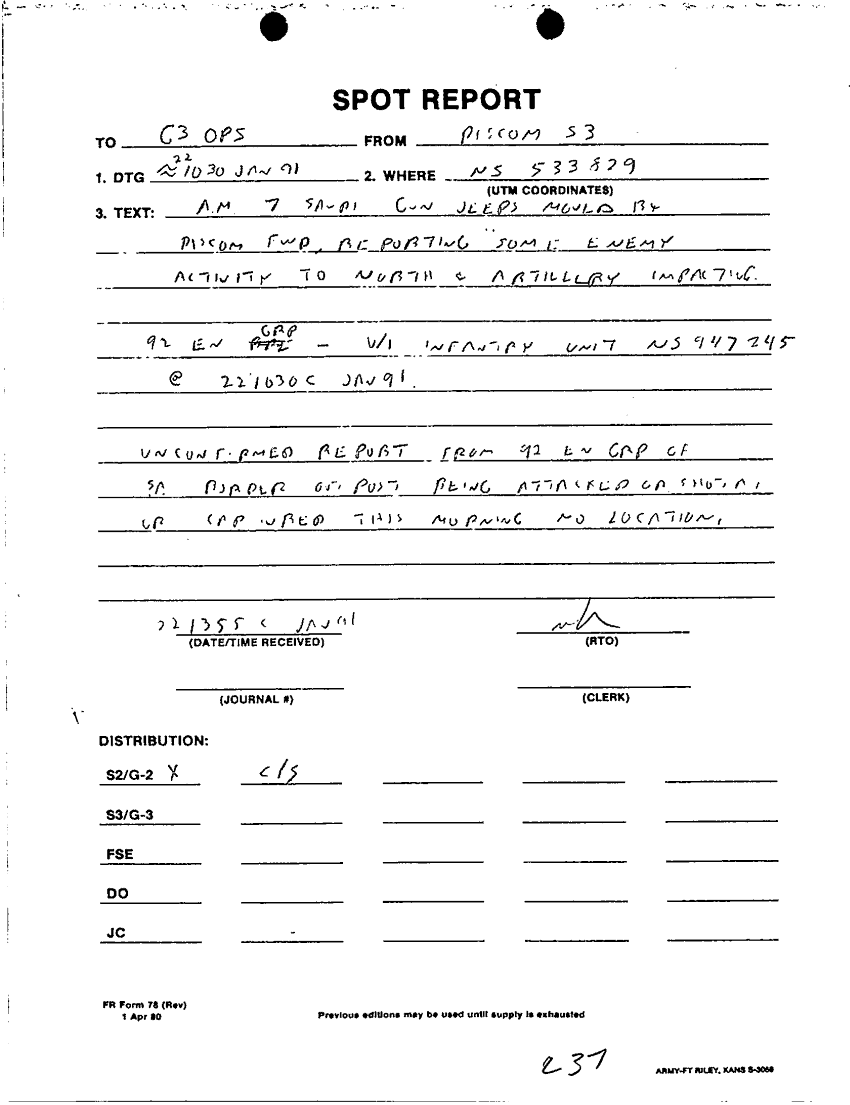 SPOT REPORT
TO G3 OPS FROM DISCOM S3
1. DTG ≈ 22 1030 JAN 91 2. WHERE NS 533829
(UTM COORDINATES)
3. TEXT: A.M. 7 SAUDI GUN JEEPS MOVED BY
DISCOM FWD, REPORTING SOME ENEMY
ACTIVITY TO NORTH & ARTILLERY IMPACTING.
92 EN GRP - U/I INFANTRY UNIT NS 947245
@ 221030C JAN 91.
UNCONFIRMED REPORT FROM 92 EN GRP OF
SA BORDER POST BEING ATTACKED OR SHOT AT
OR CAPTURED THIS MORNING NO LOCATION.
221355 C JAN 91
(DATE/TIME RECEIVED) (RTO)
(JOURNAL #) (CLERK)
DISTRIBUTION:
S2/G-2 X C/S
S3/G-3
FSE
DO
JC
FR Form 78 (Rev)
1 Apr 80 Previous editions may be used until supply is exhausted
237
ARMY-FT RILEY, KANS S-3059